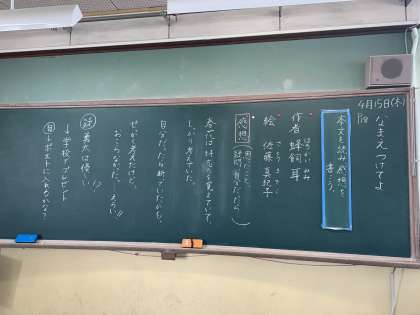 4月15日(木)
なまえつけてよ
本文を読み感想を書こう。
作者 蜂飼 耳
絵 佐藤 真紀子
感想
思ったこと、
疑問、自分だったら
春花は
を覚えていて、
しっかり考えていた。
自分だったら断っていたかも。
せっかく考えたけど、
おこらなかった。えらい!!
勇太は優しい
!?
↓学校でプレゼント
自↓ポストに入れるかな?